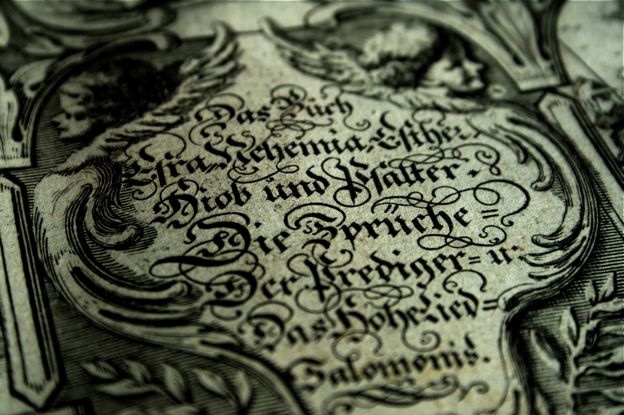 Das Buch
Esra, Nehemia, Esther,
Hiob und Psalter.
Die Sprüche=
Der Prediger= u:
Das Hohe Lied=
Salomonis.